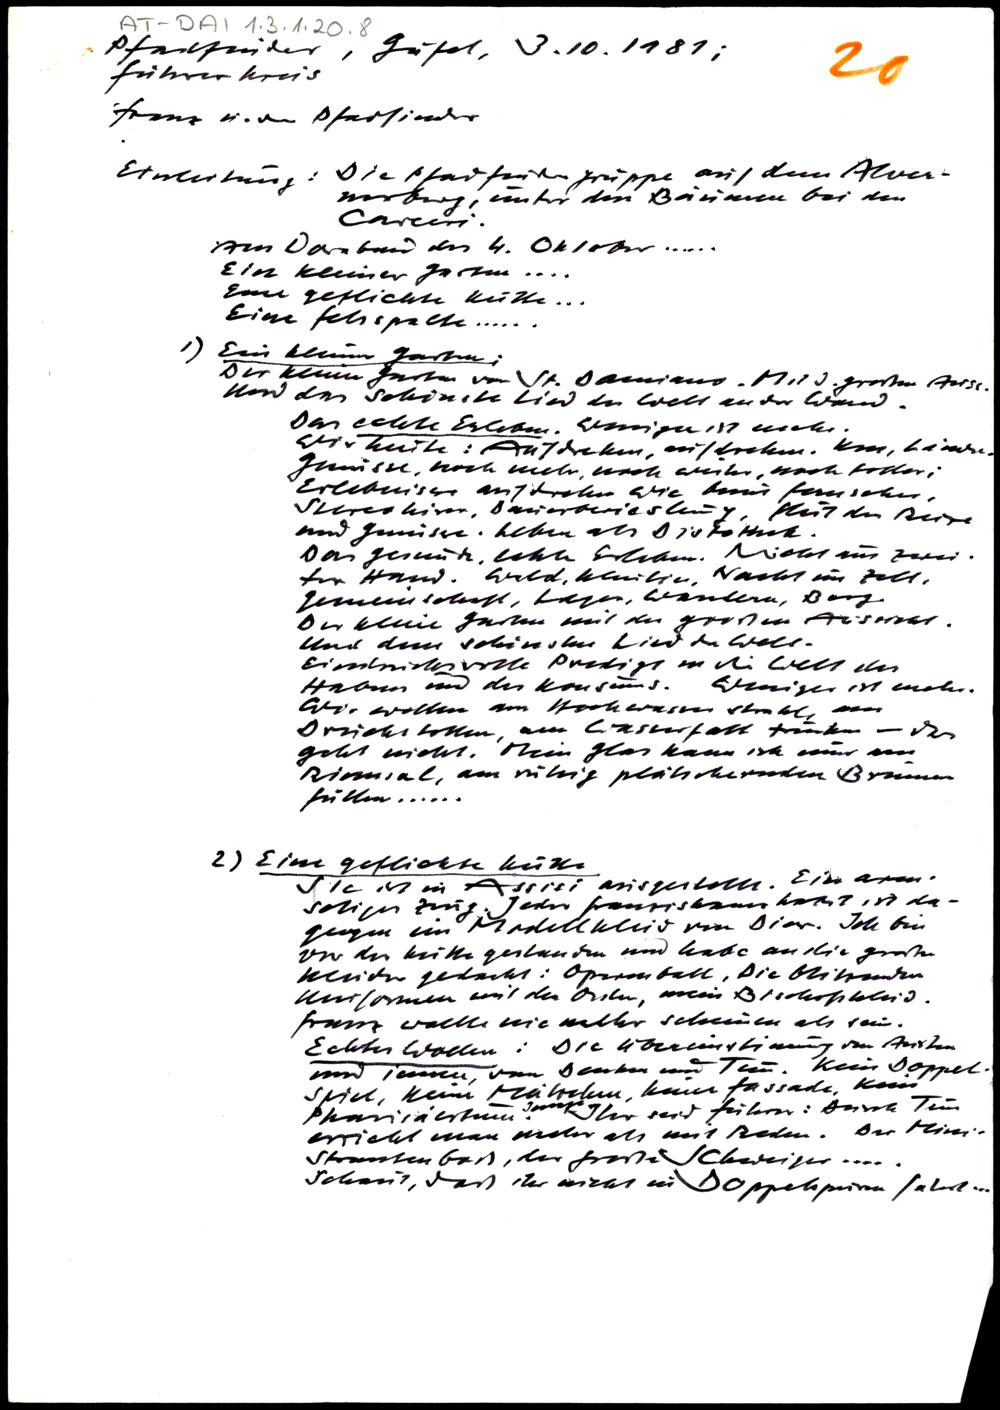 AT-DAI 1.3.1.20.8
20
Pfadfinder, Güfel, 3.10.1981;
Führerkreis
Franz u. die Pfadfinder
Einleitung: Die Pfadfindergruppe auf dem Alver-
naberg, unter den Bäumen bei den
Carceri.
Am Vorabend des 4. Oktober......
Ein kleiner Garten....
Eine geflickte Kutte...
Eine Felsspalte......
1) Ein kleiner Garten:
Der kleine Garten von St. Damiano. Mit d. großen Auss.
Und das schönste Lied der Welt an der Wand.
Das echte Erleben. Weniger ist mehr.
Wir heute: Aufdrehen, aufdrehen. Km, Länder,
Genüsse, noch mehr, noch weiter, noch toller;
Erlebnisse aufdrehen wie beim Fernsehen,
Stereohören, Dauerberieselung, Flut der Reize
und Genüsse. Leben als Diskothek.
Das gesunde, echte Erleben. Nicht aus zwei-
ter Hand. Wald, Nacht im Zelt,
Gemeinschaft, Lager, Wandern, Berg
Der kleine Garten mit der großen Aussicht.
Und dem schönsten Lied der Welt.
Eindrucksvolle Predigt in die Welt des
Habens und des Konsums. Weniger ist mehr.
Wir wollen am Hochwasserstrahl, am
Druckstollen, am Wasserfall trinken – das
geht nicht. Mein Glas kann ich nur am
Rinnsal, am ruhig plätschernden Brunnen
füllen......
2) Eine geflickte Kutte
Sie ist in Assisi ausgestellt. Ein arm-
seliges Zeug. Jeder Franziskanerhabit ist da-
gegen ein Modellkleid von Dior. Ich bin
vor der Kutte gestanden und habe an die großen
Kleider gedacht: Opernball, Die blitzenden
Uniformen mit den Orden, mein Bischofskleid.
Franz wollte nie mehr scheinen als sein.
Echtes Wollen: Die Übereinstimmung von Außen
und Innen, von Denken und Tun. Kein Doppel-
spiel, keine Mätzchen, keine Fassade, kein
Pharisäertum. Ihr seid Führer: Durch Tun
erreicht man mehr als mit Reden. Der Mini-
strantenbub, der große Schweiger....
Schaut, daß ihr nicht in Doppelspuren fahrt...